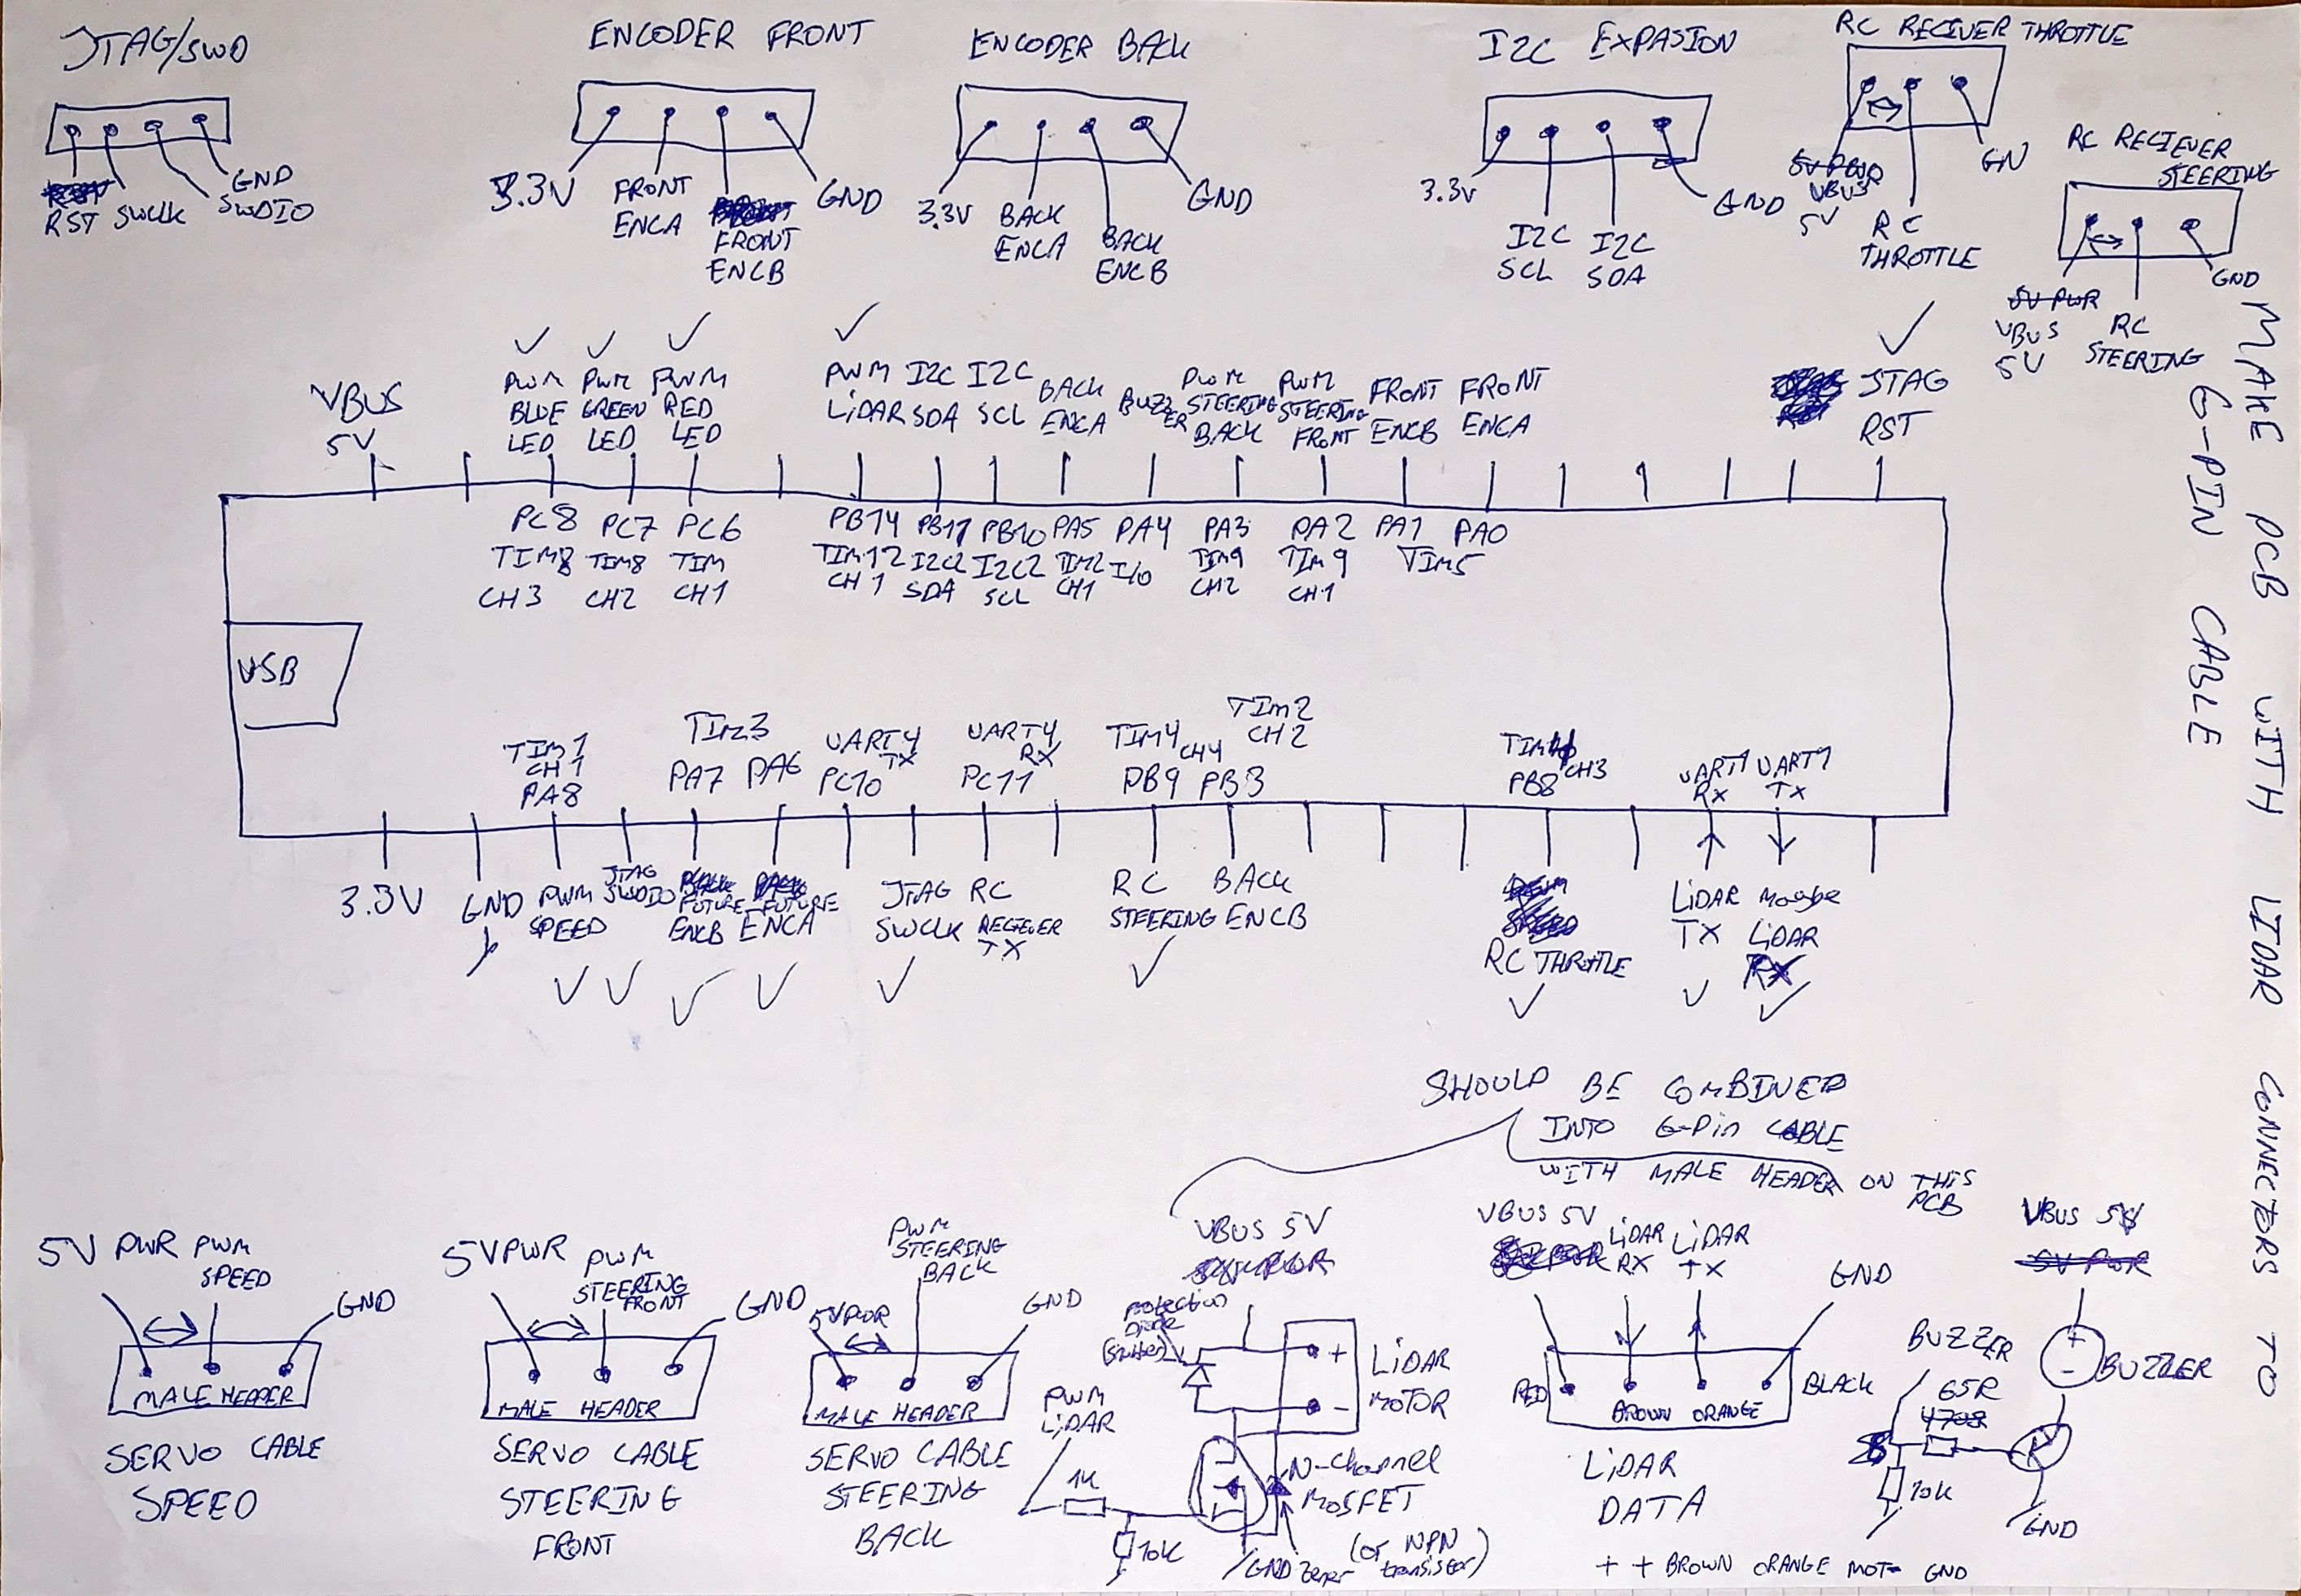 JTAG/SWD
RST SWCLK SWDIO
GND
ENCODER FRONT
3.3V
FRONT
ENCA
FRONT
ENCB
GND
ENCODER BACK
3.3V
BACK
ENCA
BACK
ENCB
GND
I2C EXPASION
3.3V
I2C
SCL
I2C
SDA
GND
RC RECIVER THROTTLE
5V PWR
VBUS
5V
RC
THROTTLE
GN
RC RECIEVER
STEERING
5V PWR
VBUS
5V
RC
STEERING
GND
MAKE PCB WITH LIDAR CONNECTORS TO
6-PIN CABLE
VBUS
5V
PWM
BLUE
LED
PWM
GREEN
LED
PWM
RED
LED
PWM
LiDAR
I2C
SDA
I2C
SCL
BACK
ENCA
BUZZ
ER
PWM
STEERING
BACK
PWM
STEERING
FRONT
FRONT
ENCB
FRONT
ENCA
JTAG
RST
PC8
TIM8
CH3
PC7
TIM8
CH2
PC6
TIM
CH1
PB14
TIM12
CH1
PB11
I2C2
SDA
PB10
I2C2
SCL
PA5
TIM2
CH1
PA4
I/O
PA3
TIM9
CH2
PA2
TIM9
CH1
PA1 PA0
TIM5
USB
TIM1
CH1
PA8
TIM3
PA7 PA6
UART4
TX
PC10
UART4
RX
PC11
TIM4
CH4
PB9
TIM2
CH2
PB3
TIM4
CH3
PB8
UART1
RX
UART1
TX
3.3V
GND
PWM
SPEED
JTAG
SWDIO
FUTURE
ENCB
FUTURE
ENCA
JTAG
SWCLK
RC
RECIEVER
TX
RC
STEERING
BACK
ENCB
RC THROTTLE
LiDAR
TX
Maybe
LiDAR
RX
SHOULD BE COMBINED
INTO 6-Pin CABLE
WITH MALE HEADER ON THIS
PCB
5V PWR
PWM
SPEED
GND
MALE HEADER
SERVO CABLE
SPEED
5VPWR
PWM
STEERING
FRONT
GND
MALE HEADER
SERVO CABLE
STEERING
FRONT
PWM
STEERING
BACK
5VPWR
GND
MALE HEADER
SERVO CABLE
STEERING
BACK
VBUS 5V
5V PWR
protection
Diode
+
-
LiDAR
MOTOR
PWM
LiDAR
1K
10K
GND
N-Channel
MOSFET
(or NPN
transistor)
VBUS 5V
LiDAR
RX
LiDAR
TX
GND
RED
BROWN ORANGE
BLACK
LiDAR
DATA
+ + BROWN ORANGE MOT- GND
VBUS 5V
5V PWR
+
-
BUZZER
BUZZER
65R
470R
10K
GND